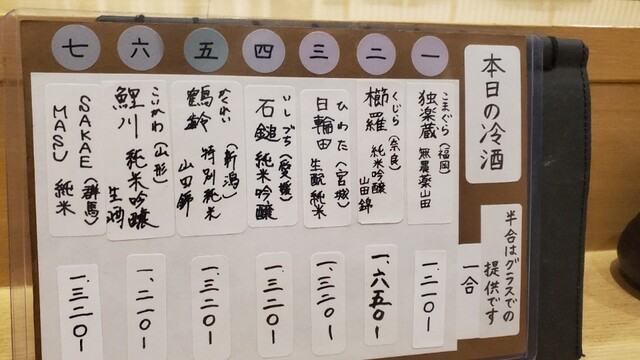 本日の冷酒
半合はグラスでの
提供です
一合
一
こまぐら(福岡)
独楽蔵 無農薬山田
一.二一〇-
二
くじら(奈良)
櫛羅 純米吟醸
山田錦
一.六五〇-
三
ひわた(宮城)
日輪田 生酛純米
一.三二〇-
四
いしづち(愛媛)
石鎚 純米吟醸
一.三二〇-
五
かくれい(新潟)
鶴齢 特別純米
山田錦
一.三二〇-
六
こいかわ(山形)
鯉川 純米吟醸
生酒
一.二一〇-
七
SAKAE(群馬)
MASU 純米
一.三二〇-